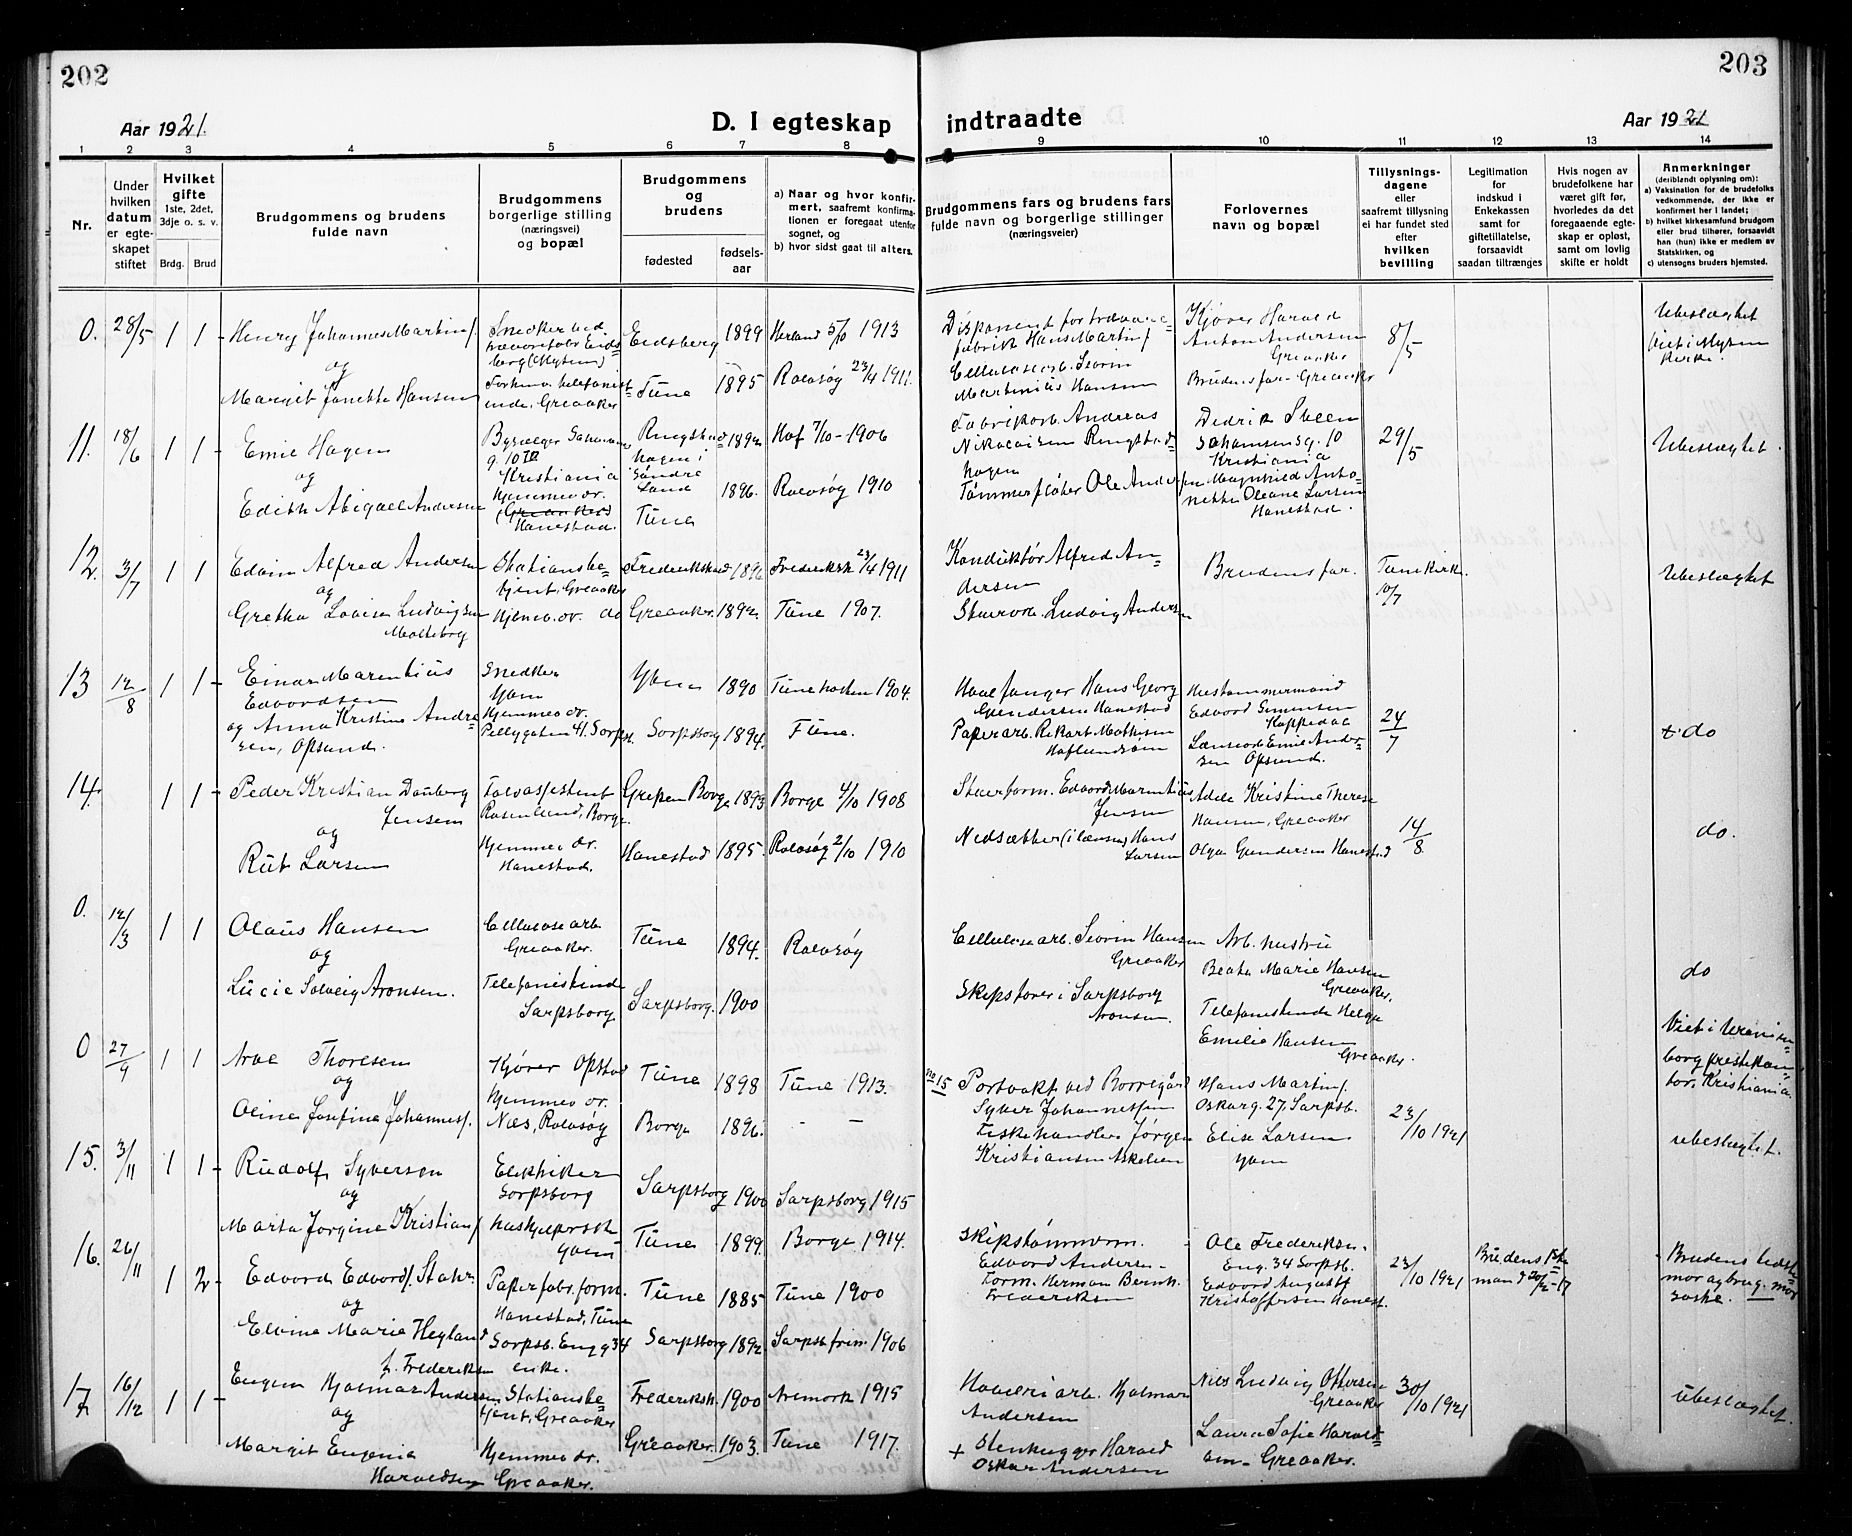 202
203
Aar 1921.
D. I egteskap
indtraadte
Aar 1921
1 2 3 4 5 6 7 8
9 10 11 12 13 14
Nr.
Under hvilken datum er egteskapet stiftet
Hvilket gifte
1ste, 2det, 3dje o. s. v.
Brdg. Brud
Brudgommens og brudens fulde navn
Brudgommens borgerlige stilling (næringsvei) og bopæl
Brudgommens og brudens
fødested
fødsels-aar
a) Naar og hvor konfirmert, saafremt konfirmationen er foregaat utenfor sognet, og
b) hvor sidst gaat til alters.
Brudgommens fars og brudens fars fulde navn og borgerlige stillinger (næringsveier)
Forlovernes navn og bopæl
Tillysningsdagene eller saafremt tillysning ei har fundet sted efter hvilken bevilling
Legitimation for indskud i Enkekassen samt for giftetillatelse, forsaavidt saadan tiltrænges
Hvis nogen av brudefolkene har været gift før, hvorledes da det foregaaende egteskap er opløst, samt om lovlig skifte er holdt
Anmerkninger
(deriblandt oplysning om):
a) Vaksination for de brudefolks vedkommende, der ikke er konfirmert her i landet;
b) hvilket kirkesamfund brudgom eller brud tilhører, forsaavidt han (hun) ikke er medlem av Statskirken, og
c) utensogns bruders hjemsted.
0. 28/5 1 1 - Henry Johannes Martins/ Snedker ved Eidsberg 1899 Herland 5/10 1913
og
Margit Janette Hansen Greaaker Tune 1895 Rolvsøy 23/4 1911.
Disponent for trævare-
fabrik Hans Martins/
Cellulosearb. Severin
Martinius Hansen
Harald
Anton Andersen
Greaaker
Brudens far - Greaaker
8/5
Ubeslægtet
Viet i Mysen
kirke.
11. 18/6 1 1 Emil Hagen Kristiania 1892 Hof 7/10 - 1906
og
Edith Abigael Andersen Hjemmev. dr. Hanestad. Tune 1896. Rolvsøy 1910
Fabrikarb. Andreas
Nikolaisen Ringstad-
hagen
Tømmerfløter Ole Andersen
Dedrik Steen
Kristiania
Magnhild Anto-
nette Oleane Larsen
Hanestad.
29/5
Ubeslægtet.
12. 3/7 1 1 Edvin Alfred Andersen Stationsbe-
tjent, Greaaker Frederikstad 1896 Frederikst. 23/4 1911
og
Gretha Lovise Ludvigsen
Molteberg Hjemv. dr. do Greaaker. 1892. Tune 1907.
Konduktør Alfred An-
dersen
Ludvig Andersen
Brudens far.
Tune kirk.
10/7
Ubeslægtet
13 12/8 1 1 - Einar Marentius
Edvardsen Snedker 1890 Tune 1904.
og Anna Kristine Andre-
sen, Opsund. Hjemmev. dr.
Pellygaten 41. Sarpsb. Sarpsborg 1894. Tune.
Hans Georg
Gundersen Hanestad
Papirarb. Rikart Mathisen
Hustømmermand
Edvard Simensen
Emil Ander-
sen Opsund.
24/7
do
14. 1 1 - Peder Kristian Dauberg
Jensen Tolvassistent
Rosenlund, Borge. Borge 1893 Borge 4/10 1908
og
Rut Larsen Hjemmev. dr.
Hanestad. Hanestad 1895. Rolvsøy 2/10 1910
Edvard Marentius
Jensen
Nedsætter (i lænsen) Hans
Larsen
Adele Kristine Therese
Hansen, Greaaker
Olga Gundersen Hanestad
14/8
do.
0. 12/3 1 1 Olaus Hansen Cellulosearb.
Greaaker. Tune 1894. Rolvsøy
og
Lucie Solveig Aronsen. Telefonistinde
Sarpsborg Sarpsborg. 1900
Cellulosearb. Severin Hansen
Greaaker
Skipsfører i Sarpsborg
Aronsen.
Arb. hustru
Beate Marie Hansen
Greaaker.
Telefonistinde Helga
Emilie Hansen
Greaaker.
do
0 27/9 1 1 Arve Thoresen Kjører Opstad Tune 1898 Tune 1913.
og
Oline Josefine Johannes/. Hjemmev dr.
Næs, Rolvsøy Borge 1896. - -
Viet i Uranien-
borg prestekon-
tor, Kristiania.
15. 3/11 1 1 - Rudolf Syversen Elektriker
Sarpsborg Sarpsborg 1900 Sarpsborg 1915
og
Marta Jørgine Kristians/ Tune 1899. Borge 1914.
no 15 Portvakt ved Borregård
Syver Johannessen
Fiskehandler Jørgen
Kristiansen Askelien
Hans Martins/.
Oskarg. 27, Sarpsb.
Elise Larsen
23/10 1921
ubeslægtet.
16. 26/11 1 2 - Edvard Edvards/. Stahr. Papirfabr.form.
Hanestad, Tune Tune 1885 Tune 1900
og
Elvine Marie Heyland
f. Frederiksen Sarpsb. Engg 34
enke. Sarpsborg 1892. Sarpsb 1906
Skipstømmerm.
Edvard Andersen -
Form. Herman Bernh.
Frederiksen
Ole Frederiksen.
Eng. 34 Sarpsb.
Edvard August
Kristoffersen Hanest.
23/10 1921
Brudens 1ste
man d 20/2 - 17
17 16/12 1 1 - Eugen Hjalmar Andersen Stationsbe-
tjent, Greaaker Frederikst. 1900 Aremark 1915
og
Margit Eugenia
Haraldsen Hjemmev dr.
Greaaker. Greaaker. 1903. Tune 1917.
Hjalmar
Andersen
+ Stenhugger Harald
Oskar Andersen
Nils Ludvig Ottersen
Greaaker
Laura Sofie Harald-
sen - Greaaker.
30/10 1921
ubeslægtet.